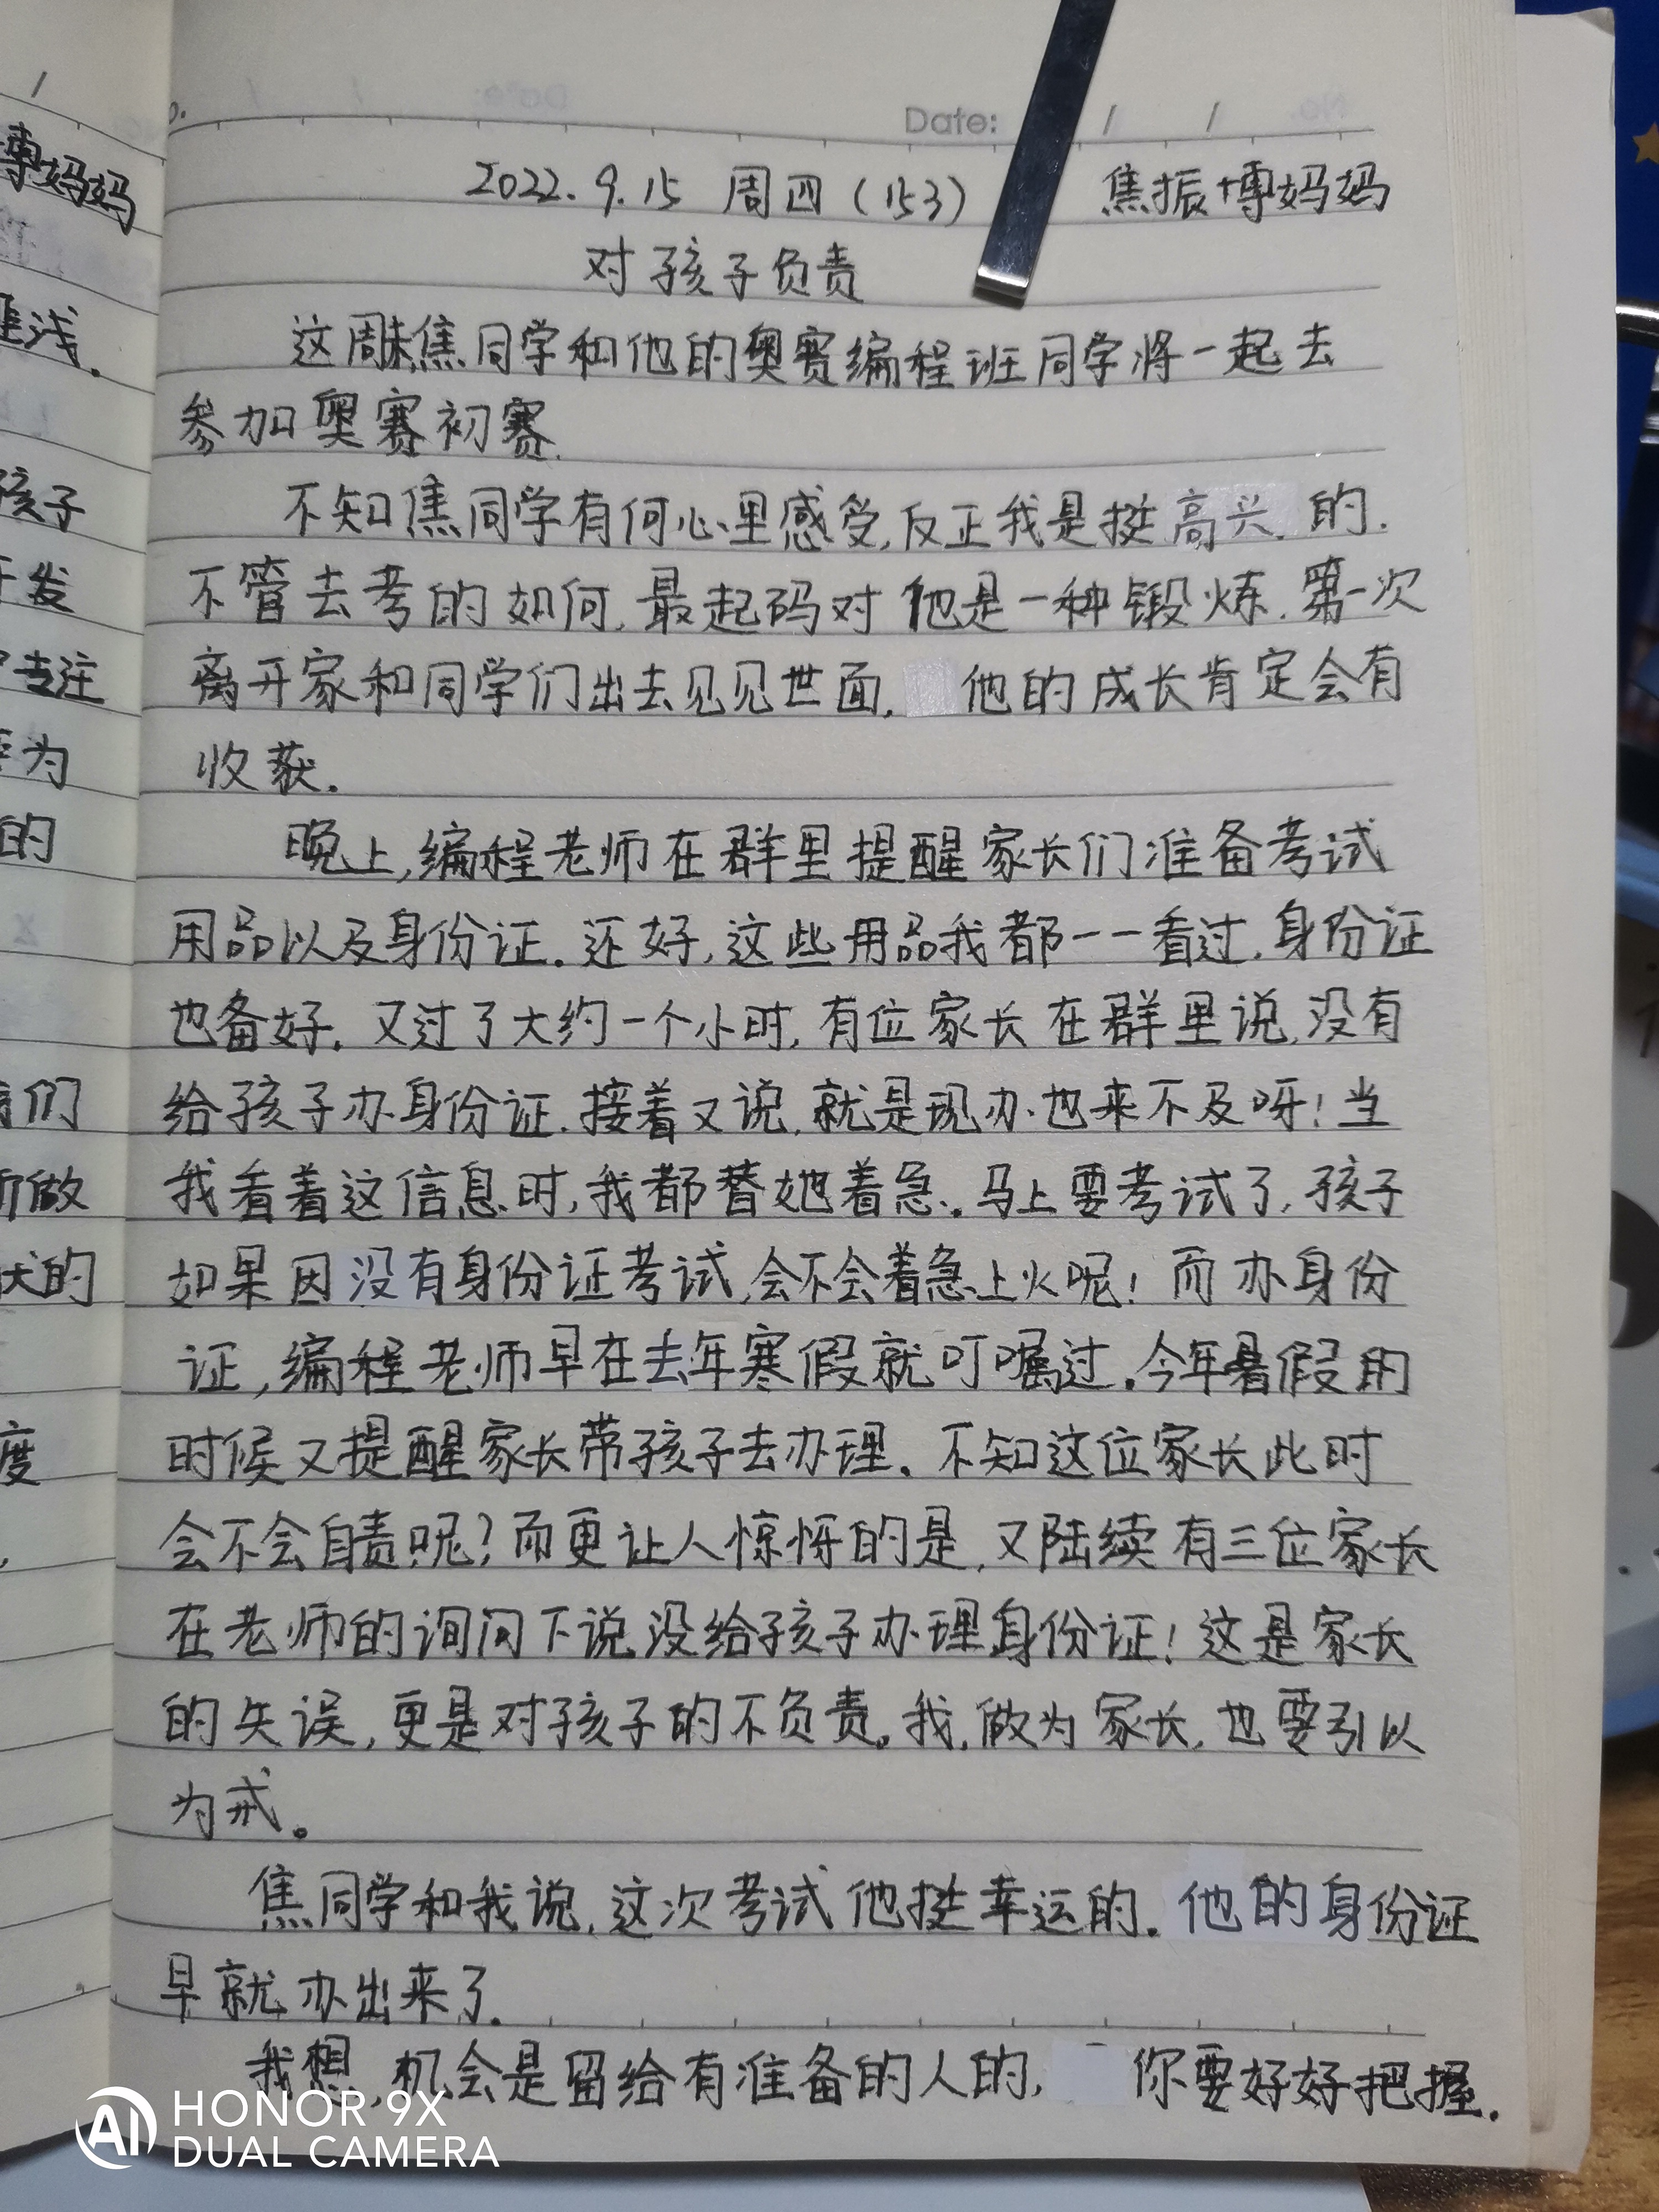 Date: / /
2022.9.15 周四（153） 焦振博妈妈
对孩子负责
这周末焦同学和他的奥赛编程班同学将一起去
参加奥赛初赛.
不知焦同学有何心里感受,反正我是挺高兴的.
不管去考的如何,最起码对他是一种锻炼.第一次
离开家和同学们出去见见世面,他的成长肯定会有
收获.
晚上,编程老师在群里提醒家长们准备考试
用品以及身份证.还好,这些用品我都一一看过,身份证
也备好.又过了大约一个小时,有位家长在群里说,没有
给孩子办身份证.接着又说,就是现办也来不及呀!当
我看着这信息时,我都替她着急.马上要考试了,孩子
如果因没有身份证考试,会不会着急上火呢!而办身份
证,编程老师早在去年寒假就叮嘱过.今年暑假的
时候又提醒家长带孩子去办理.不知这位家长此时
会不会自责呢?而更让人惊讶的是,又陆续有三位家长
在老师的询问下说没给孩子办理身份证!这是家长
的失误,更是对孩子的不负责.我,做为家长,也要引以
为戒。
焦同学和我说,这次考试他挺幸运的.他的身份证
早就办出来了.
我想,机会是留给有准备的人的,你要好好把握.
博妈妈
浅.
孩子
发
专注
为
的
们
所做
的
度
HONOR 9X
DUAL CAMERA
AI